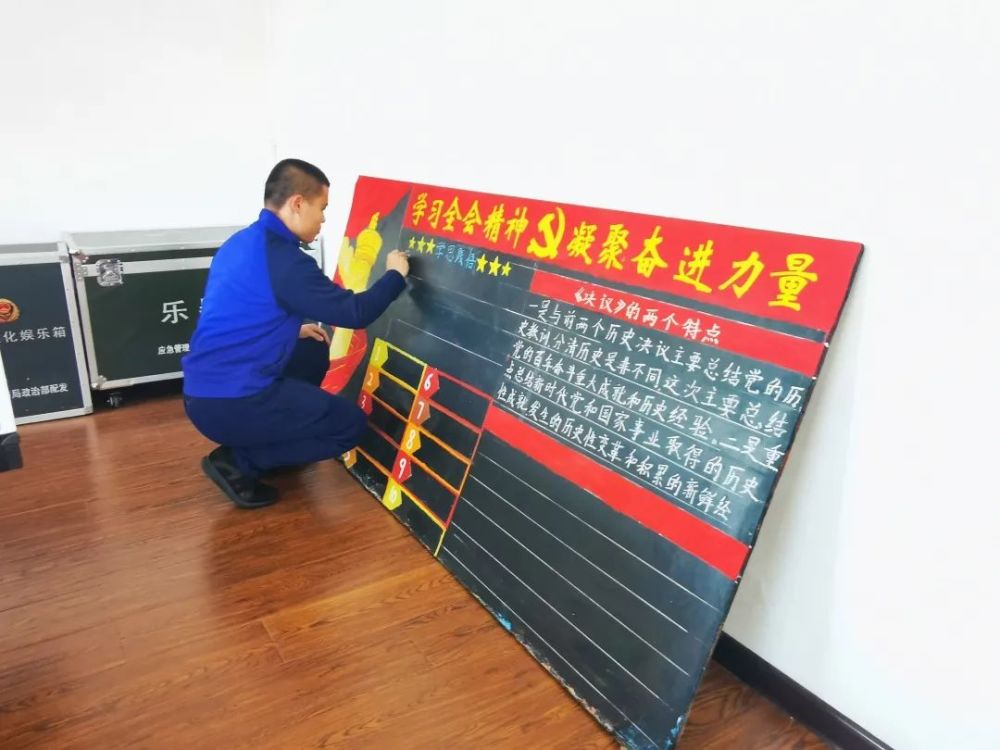 学习全会精神 凝聚奋进力量
★★★学思践悟★★★
《决议》的两个特点
一是与前两个历史决议主要总结党的历
史教训分清历史是非不同这次主要总结
党的百年奋斗重大成就和历史经验、二是重
点总结新时代党和国家事业取得的历史
性成就发生的历史性变革和积累的新鲜经
1
2
3
5
6
7
8
9
化娱乐箱
局政治部配发
乐
应急管理